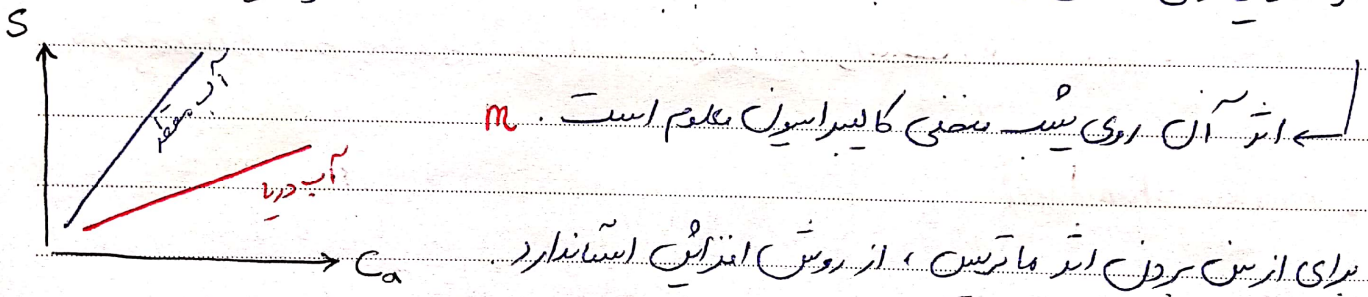 S
آب مقطر
اثر آن روی شیب منحنی کالیبراسیون معلوم است. m
آب دریا
Ca
برای از بین بردن اثر ماتریس، از روش افزایش استاندارد.